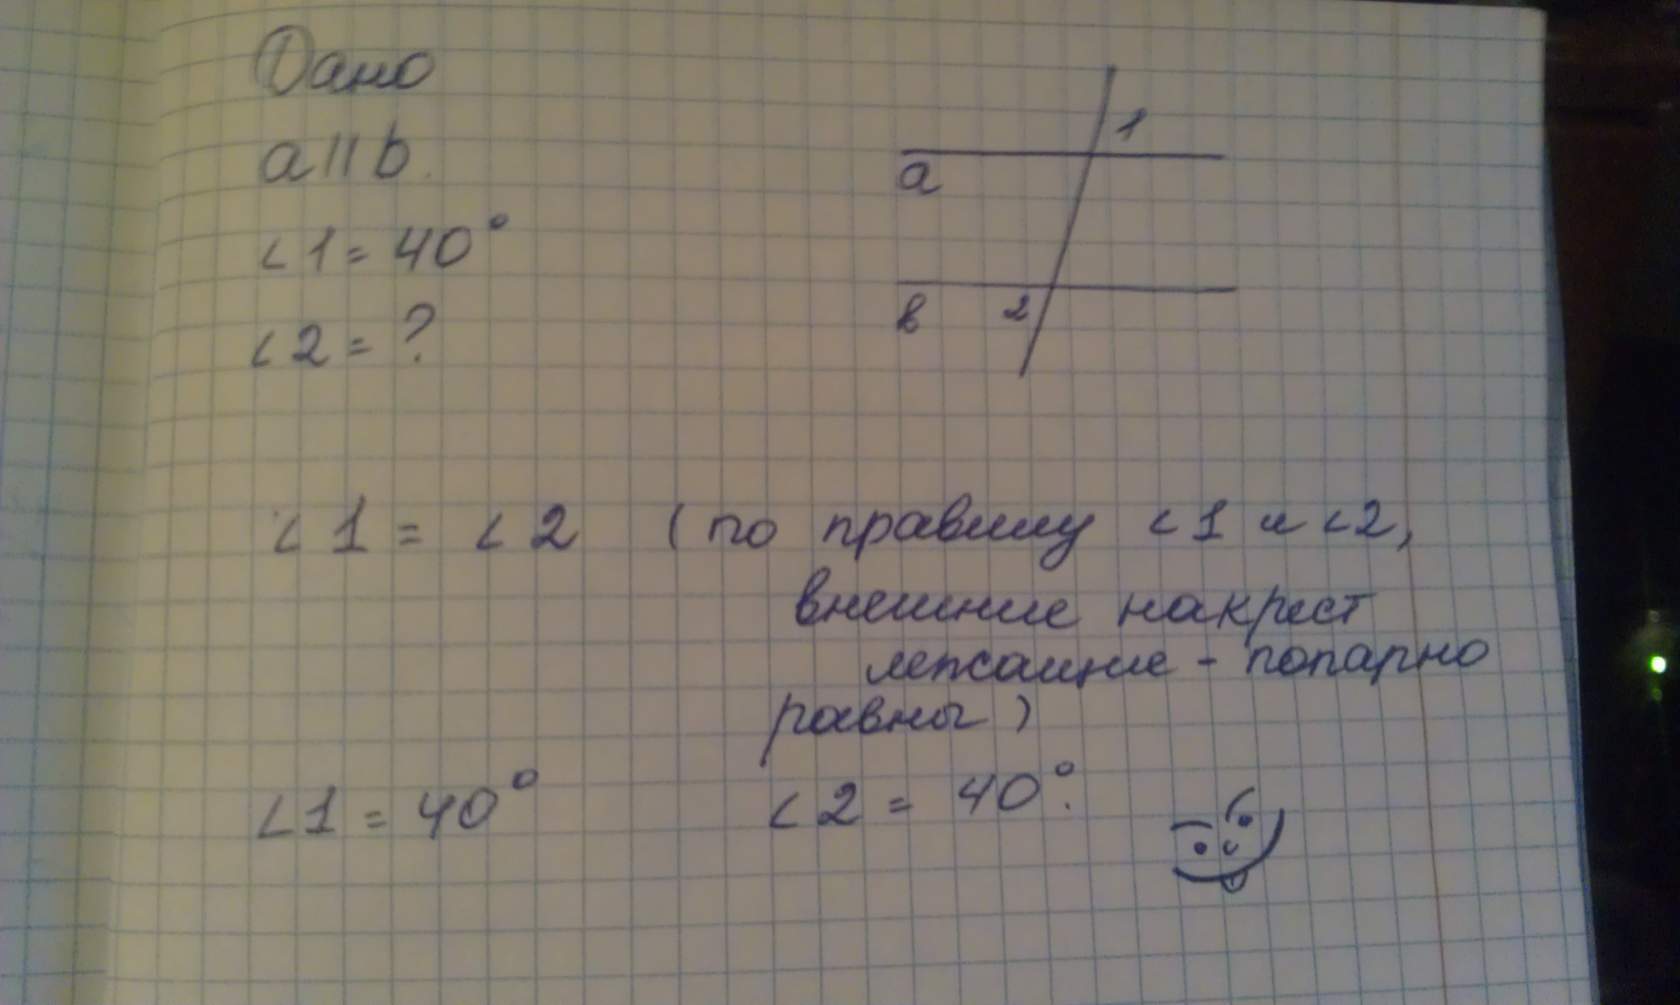 Дано
a || b.
∠1 = 40°
∠2 = ?
1
a
в
2
∠1 = ∠2 (по правилу ∠1 и ∠2,
внешние накрест
лежащие - попарно
равны)
∠1 = 40° ∠2 = 40°.